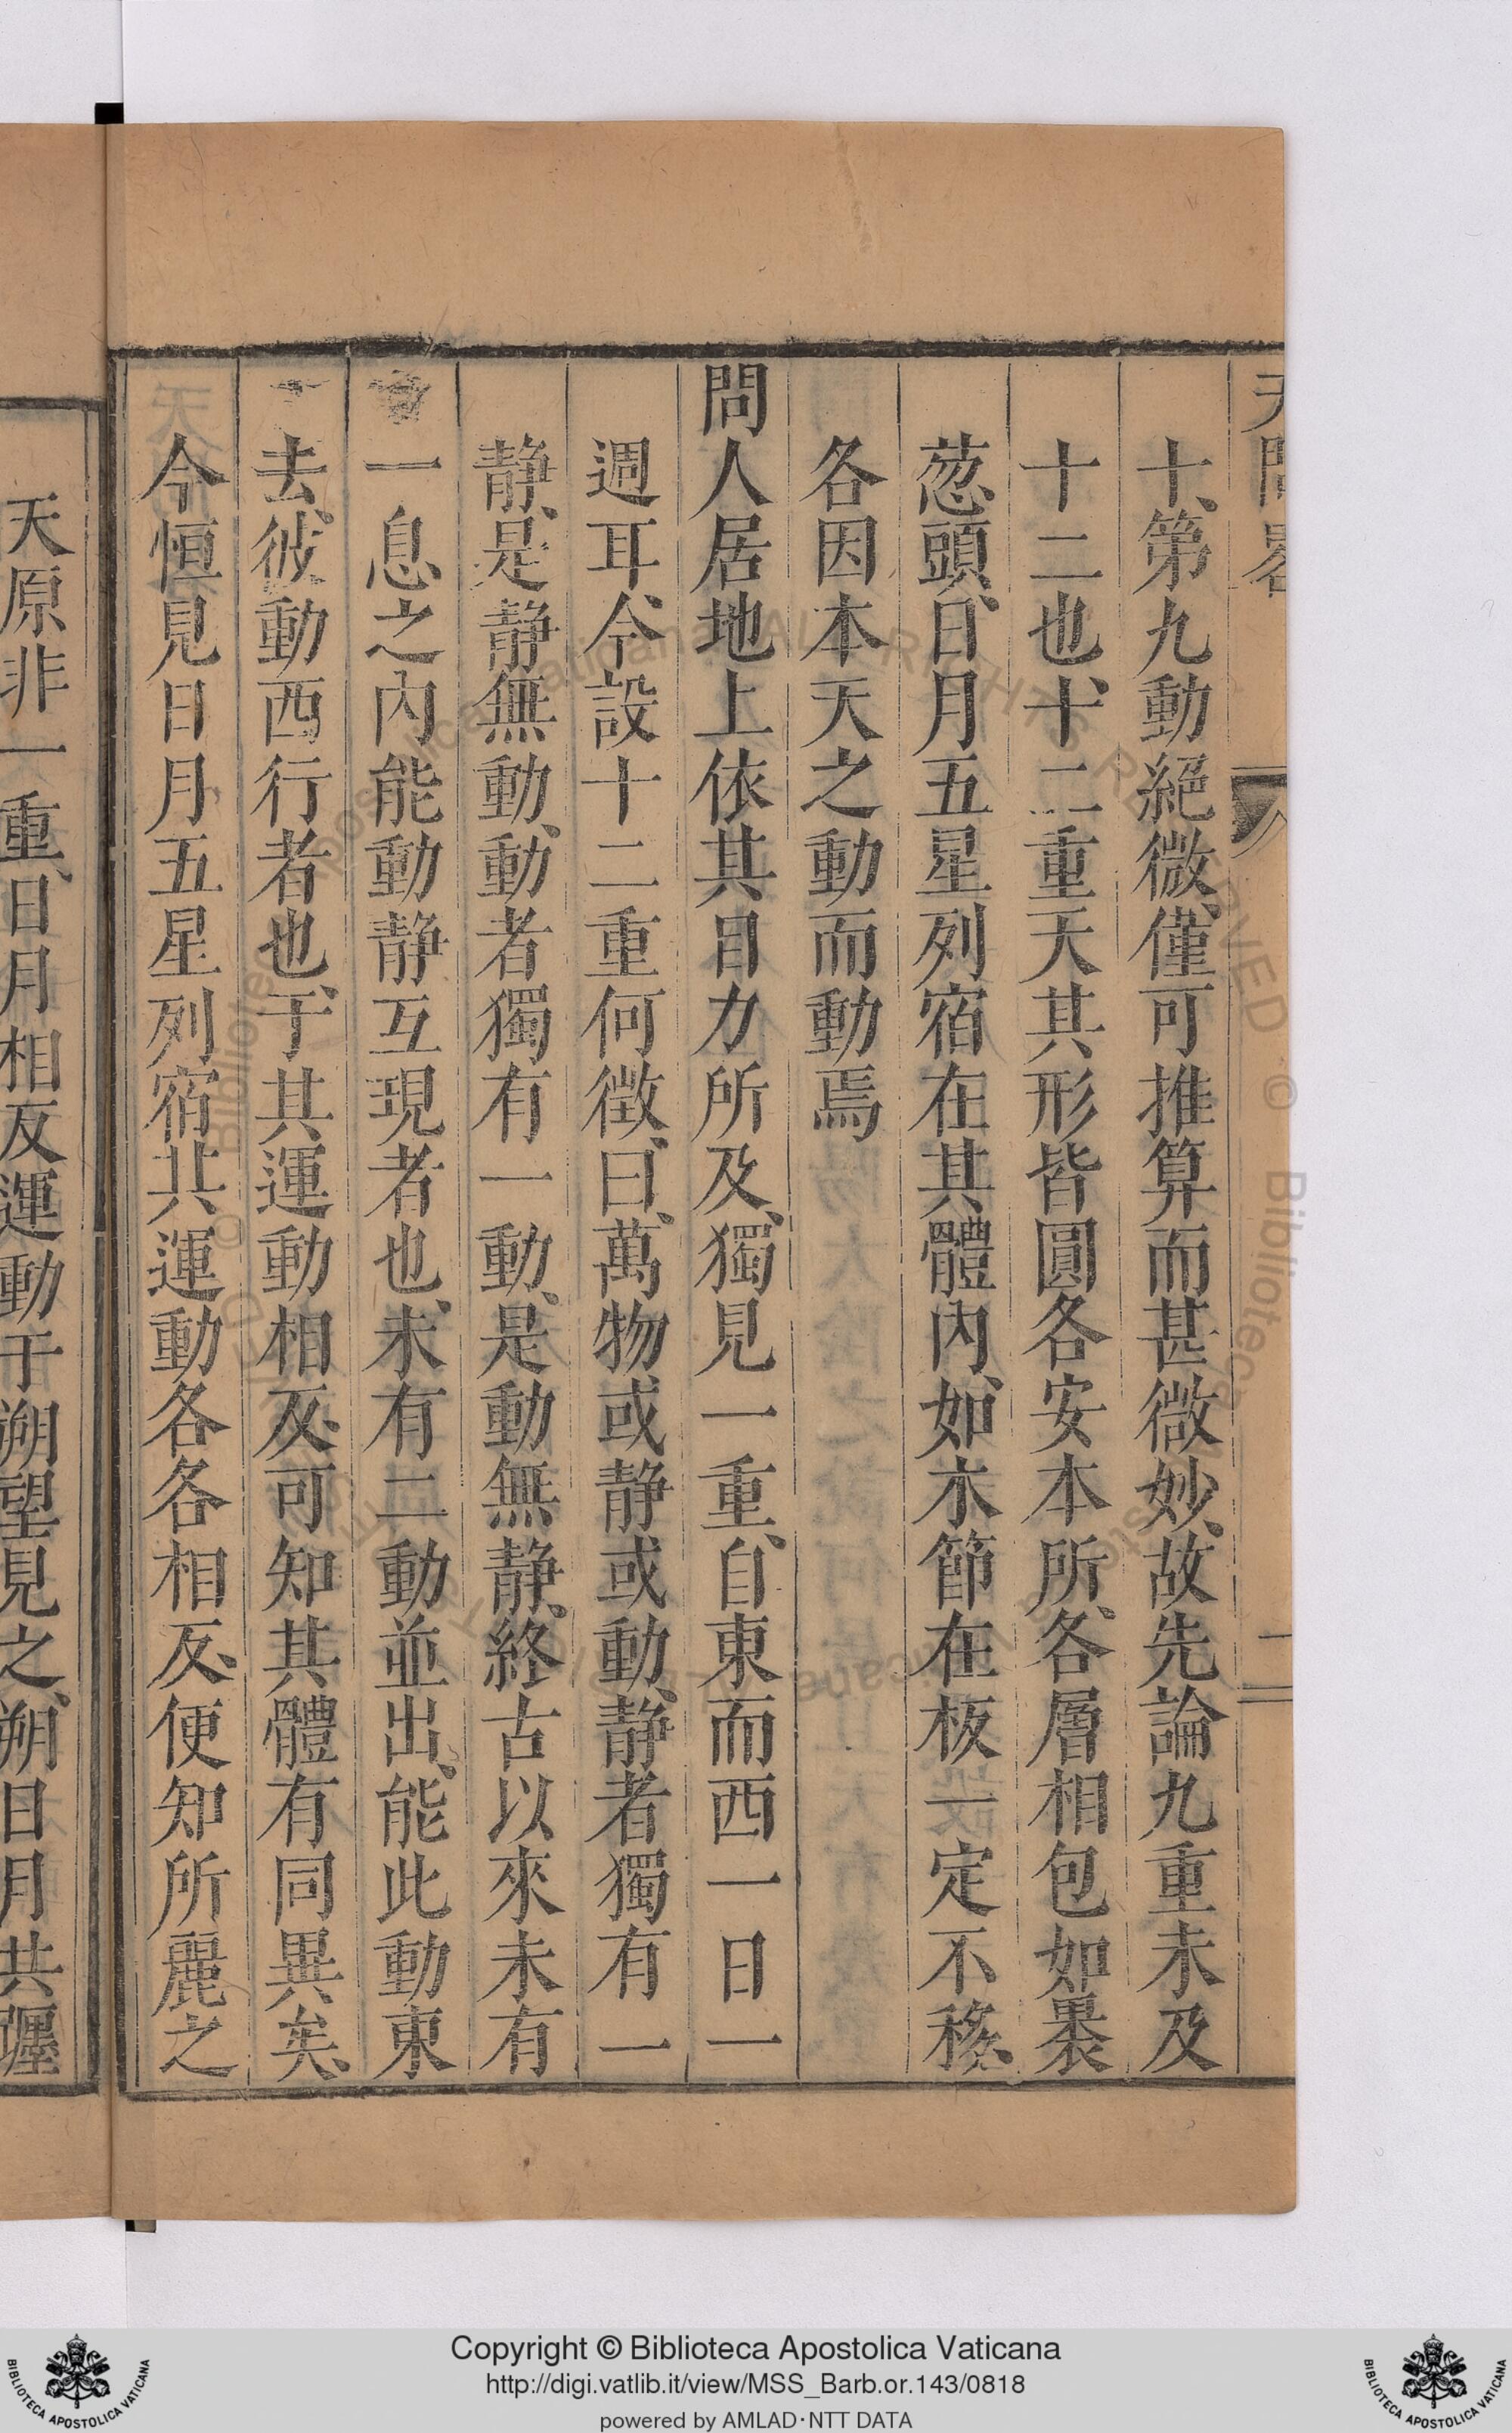 天問畧
十、第九動絕微、僅可推算而甚微妙、故先論九重未及
十二也、十二重天其形皆圓各安本所、各層相包如裹
葱頭、日月五星列宿在其體內、如木節在板一定不移、
各因本天之動而動焉
問人居地上依其目力所及、獨見一重、自東而西一日一
週耳、今設十二重何徵、曰、萬物或静或動、静者獨有一
静、是静無動、動者獨有一動、是動無静、終古以來未有
一息之內能動静互現者也、未有二動並出、能此動東
去、彼動西行者也、于其運動相反、可知其體有同異矣、
今恒見日月五星列宿共運動各各相反、便知所麗之
天原非一重、日月相反運動于朔望見之、朔日月共躔
Copyright © Biblioteca Apostolica Vaticana
http://digi.vatlib.it/view/MSS_Barb.or.143/0818
powered by AMLAD·NTT DATA
BIBLIOTECA APOSTOLICA VATICANA
BIBLIOTECA APOSTOLICA VATICANA